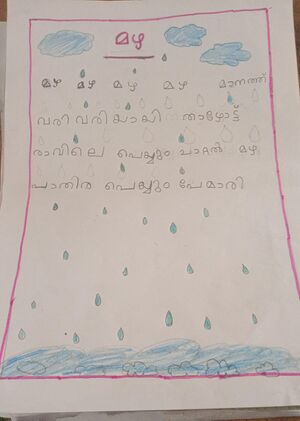 മഴ
മഴ മഴ മഴ മഴ മാനത്ത്
വരി വരിയായി താഴോട്ട്
രാവിലെ പെയ്യും ചാറ്റൽ മഴ
പാതിര പെയ്യും പേമാരി